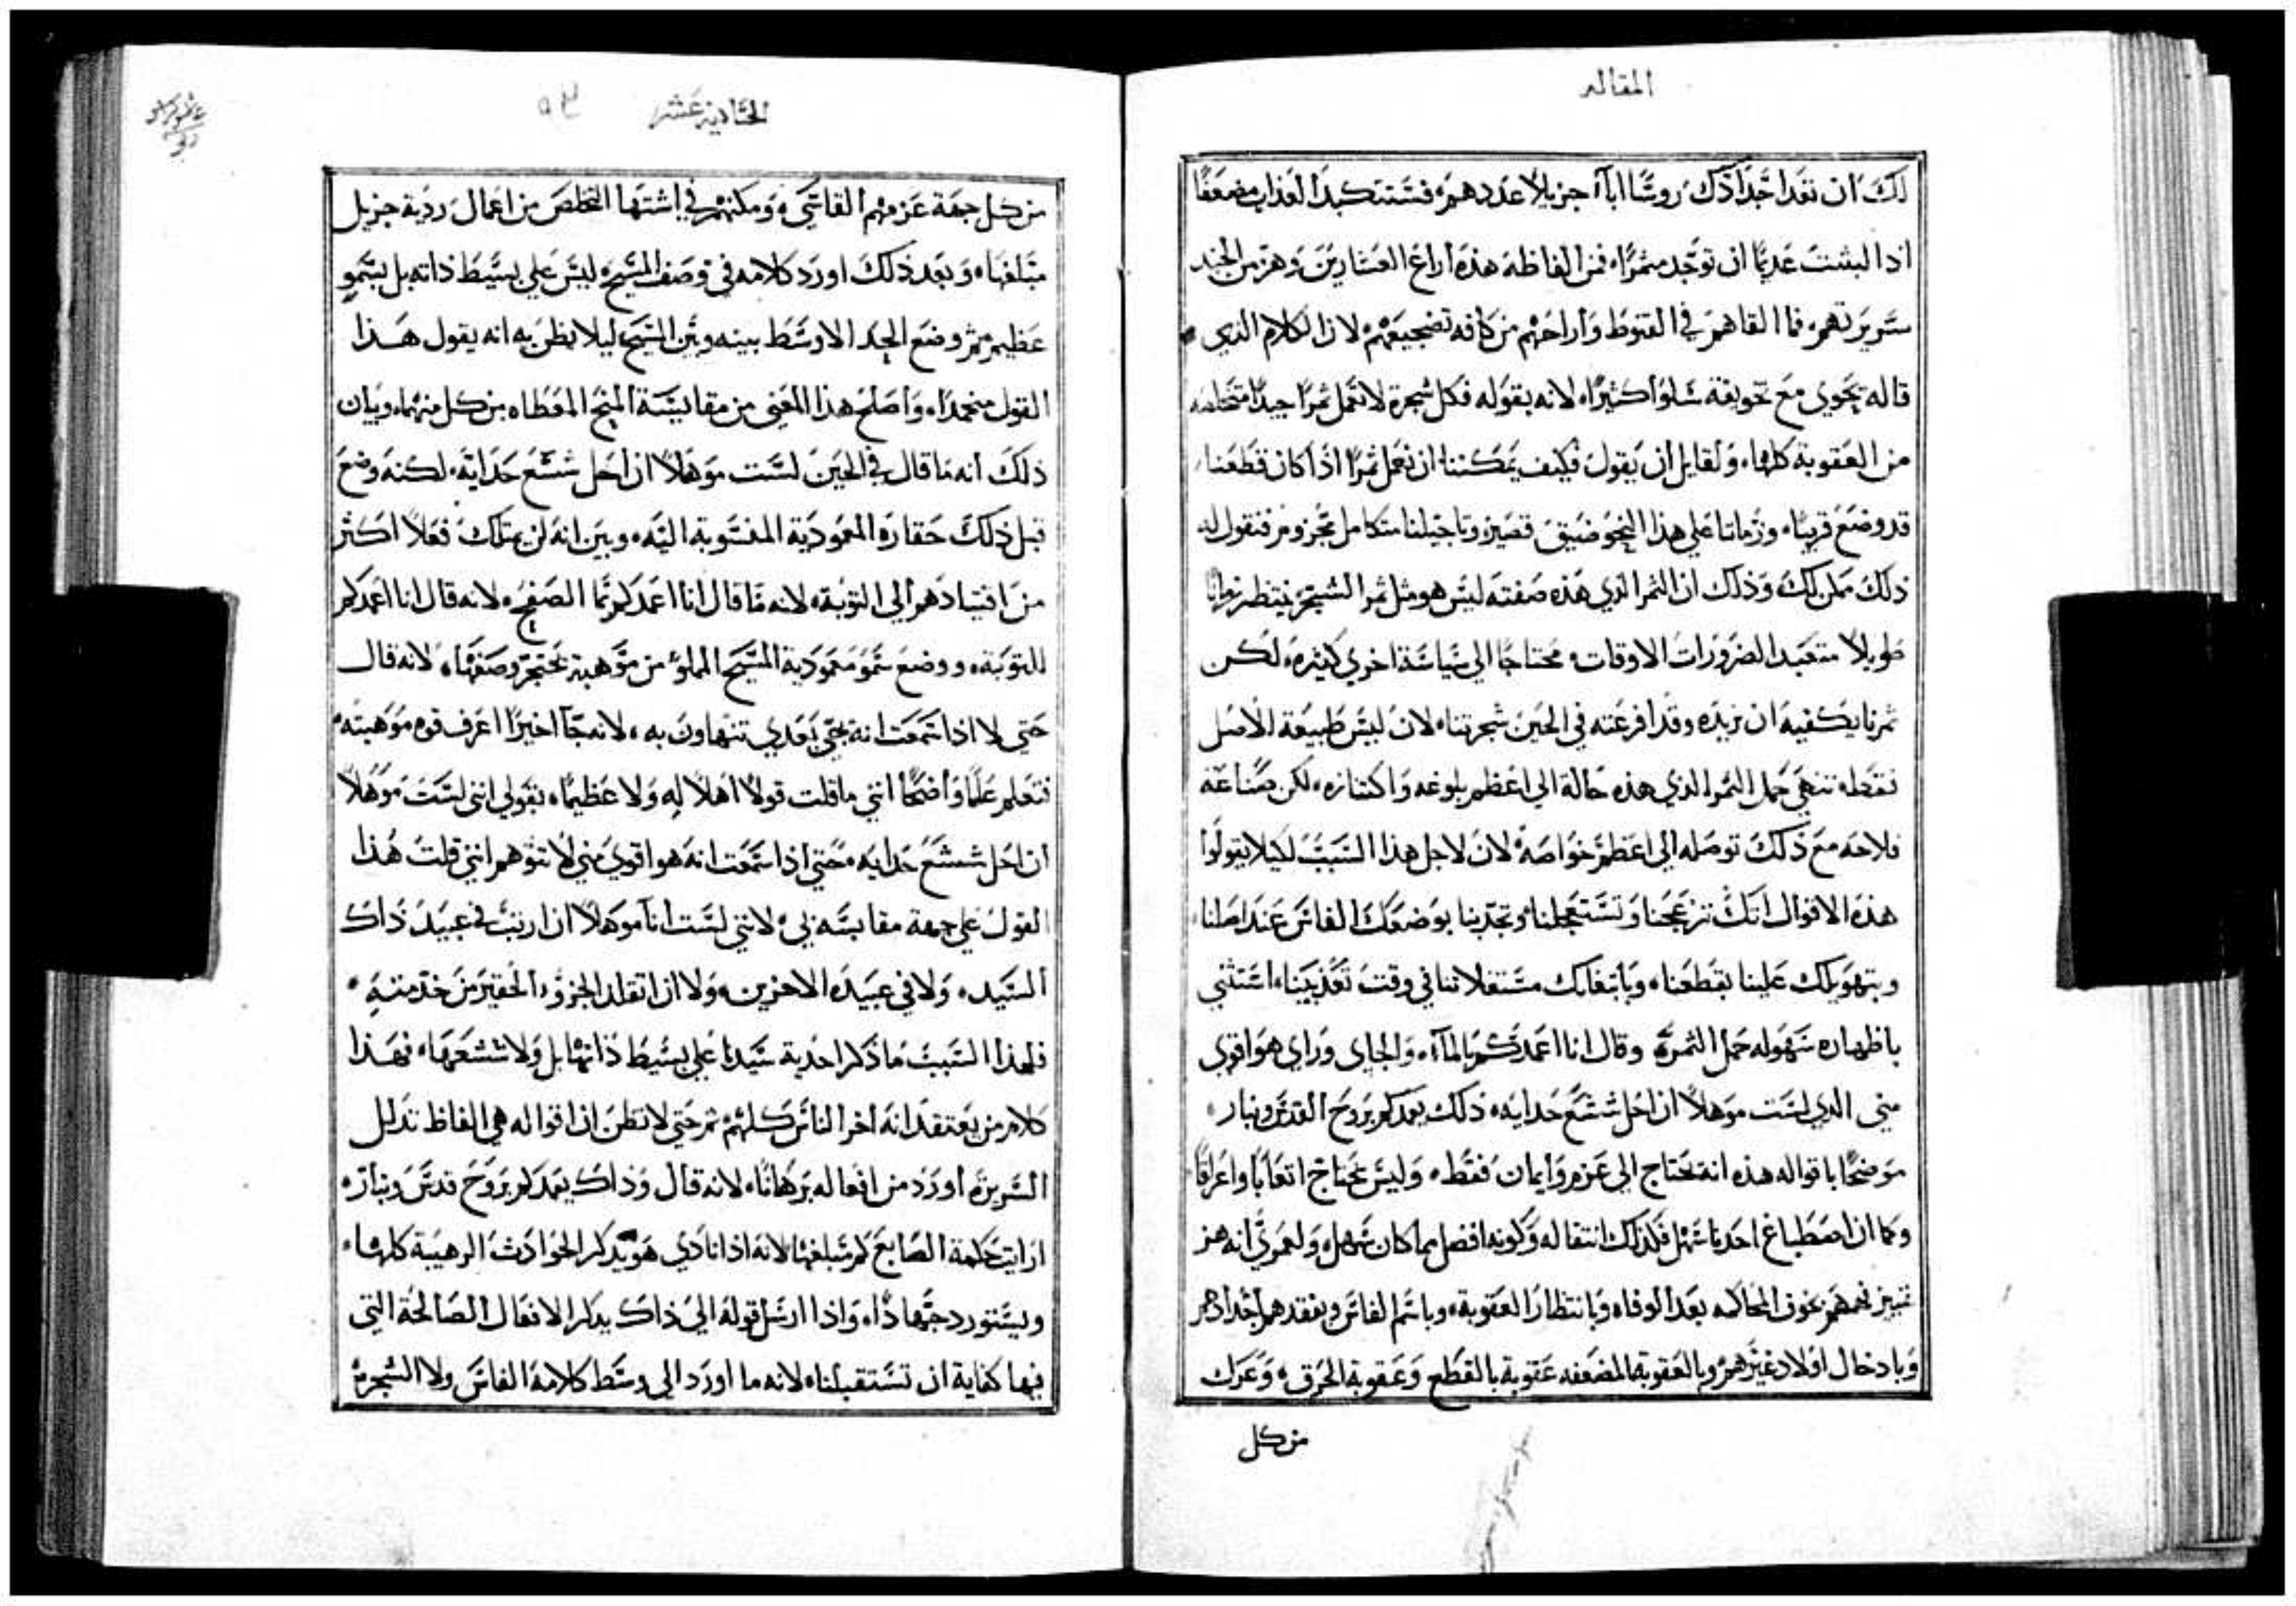 المقاله
لك ان تعد اجدادك روسًا اباآ جزيلاً عددهم فستتكبد العذاب مضعفًا
اذا لبثت عديمًا ان توجد مثمرًا فمن الفاظه هذه اراع العشارين وهز من الجند
سريرتهم فما القاهم في القنوط واراحهم من كافه تضجيعهم لان الكلام الدي
قاله يحوي مع تخويفه سلوًا كثيرًا لانه بقوله فكل شجرة لا تعمل ثمرًا جيدًا متخلصه
من العقوبة كلها ولقايل ان يقول فكيف يمكننا ان نعمل ثمرًا اذا كان قطعنا
قد وضع قريبًا وزماننا علي هذا النحو ضيق قصير وتاجيلنا متكامل مجزوم فنقول له
ذلك ممكن لك وذلك ان الثمر الذي هذه صفته ليس هو مثل ثمر الشجر ينتظر زمانًا
طويلاً متعبد الضرورات الاوقات محتاجًا الي سياسة اخري كثيره لكن
ثمرنا يكفيه ان نريده وقد افرعته في الحين شجرتنا لان ليس طبيعة الاصل
فقط تنهي حمل الثمر الذي هذه حالة الي اعظم بلوغه واكتنازه لكن صناعه
فلاحه مع ذلك توصله الي اعظم خواصه لان لاجل هذا السبب لكيلا يقولوا
هذه الاقوال انك تزعجنا وتستعجلنا وتجدبنا بوضعك الفاس عند اصلنا
وبتهويلك علينا بقطعنا وبابتغايك مستغلاتنا في وقت تعذيبنا استثني
باظهاره سهوله حمل الثمرة وقال انا اعمدكم بالمآء والجاي وراي هو اقوي
مني الدي لست موهلاً ان احل شسع حدايه ذلك يعمدكم بروح القدس ونار
موضحًا باقواله هذه انه نحتاج الي عزم وايمان فقط وليس نحتاج اتعابًا واعراقًا
وكما ان اصطباغ احدنا سهل فكذلك انتقاله وكونه افضل مما كان سهل ولعمري انه هز
تمييز فهمهم بخوف المحاكمه بعد الوفاه وبانتظار العقوبة وباسم الفاس وبفقدهم اجدادهم
وبادخال اولاد غيرهم وبالعقوبة المضعفه عقوبة بالقطع وعقوبة الحرق وعرك
من كل
الحادية عشر
من كل جهة عزمهم القاسي ومكنهم في اشتها التخلص من اعمال ردية جزيل
مبلغها وبعد ذلك اورد كلامه في وصف المسيح ليس علي بسيط ذاته بل بسمو
عظيم ثم وضع الحد الاوسط بينه وبين المسيح ليلا يظن به انه يقول هذا
القول منحمدًا واصلح هذا المعني من مقايسة المنح المعطاه من كل منهما وبيان
ذلك انه ما قال في الحين لست موهلاً ان احل شسع حدايه لكنه وضع
قبل ذلك حقارة المعمودية المنسوبة اليه وبين انه لن يمتلك فعلاً اكثر
من اقتيادهم الي التوبة لانه ما قال انا اعمدكم بما الصفح لانه قال انا اعمدكم
للتوبة ووضع سمو معمودية المسيح المملو من موهبة نحتجز وصفها لانه قال
حتي لا اذا سمعت انه يجي بعدي تتهاون به لانه جآ اخيرًا اعرف قوه موهبته
فتعلم علمًا واضحًا انني ما قلت قولاً اهلاً له ولا عظيمًا بقولي انني لست موهلاً
ان احل شسع حدايه حتي اذا سمعت انه هو اقوي مني لا تتوهم انني قلت هذا
القول علي جهة مقايسة بي لانني لست انا موهلاً ان ارتب في عبيد ذاك
السيد ولا في عبيده الاخرين ولا ان اتقلد الجزؤ الحقير من خدمته
فلهذا السبب ما ذكر احدية سيدنا علي بسيط ذاتها بل ولا شسعها فهذا
كلام من يعتقد انه اخر الناس كلهم ثم حتي لا تظن ان اقواله هي الفاظ تدلل
السريرة اورد من افعاله برهانًا لانه قال وذاك يعمدكم بروح قدس ونار
ارايت حكمة الصابغ كم مبلغها لانه اذا نادي هو يذكر الحوادث الرهيبة كلها
ويستورد جهادًا واذا ارسل قوله الي ذاك يذكر الافعال الصالحة التي
فيها كفاية ان تستقبلنا لانه ما اورد الي وسط كلامه الفاس ولا الشجرة